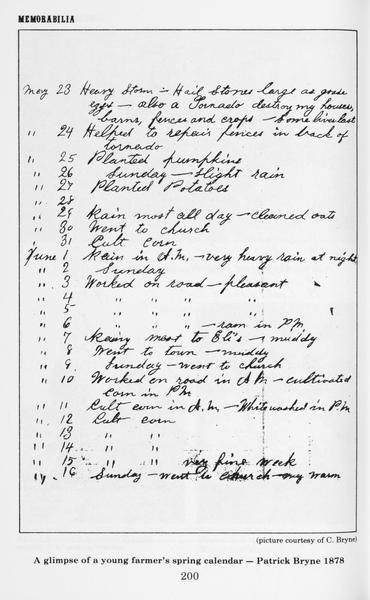 MEMORABILIA
May 23 Heavy Storm - Hail Stones large as goose
eggs - also a Tornado destroy my houses,
barns, fences and crops - Some lives lost
" 24 Helped to repair fences in back of
tornado
" 25 Planted pumpkins
" 26 Sunday - slight rain
" 27 Planted Potatoes
" 28
" 29 Rain most all day - cleaned oats
" 30 Went to church
31 Cult corn
June 1 Rain in A.M. - very heavy rain at night
" 2 Sunday
" 3 Worked on road - pleasant
" 4 " " "
" 5 " " "
" 6 " " " - rain in P.M.
" 7 most to Eli's - muddy
" 8 Went to town - muddy
" 9 Sunday - went to church
" 10 Worked on road in A.M. - cultivated
corn in P.M
" 11 Cult corn in A.M. - Whitewashed in P.M
" 12 Cult corn
" 13 " "
" 14 " "
" 15 " " very fine week
" 16 Sunday - went to church - warm
(picture courtesy of C. Bryne)
A glimpse of a young farmer's spring calendar — Patrick Bryne 1878
200